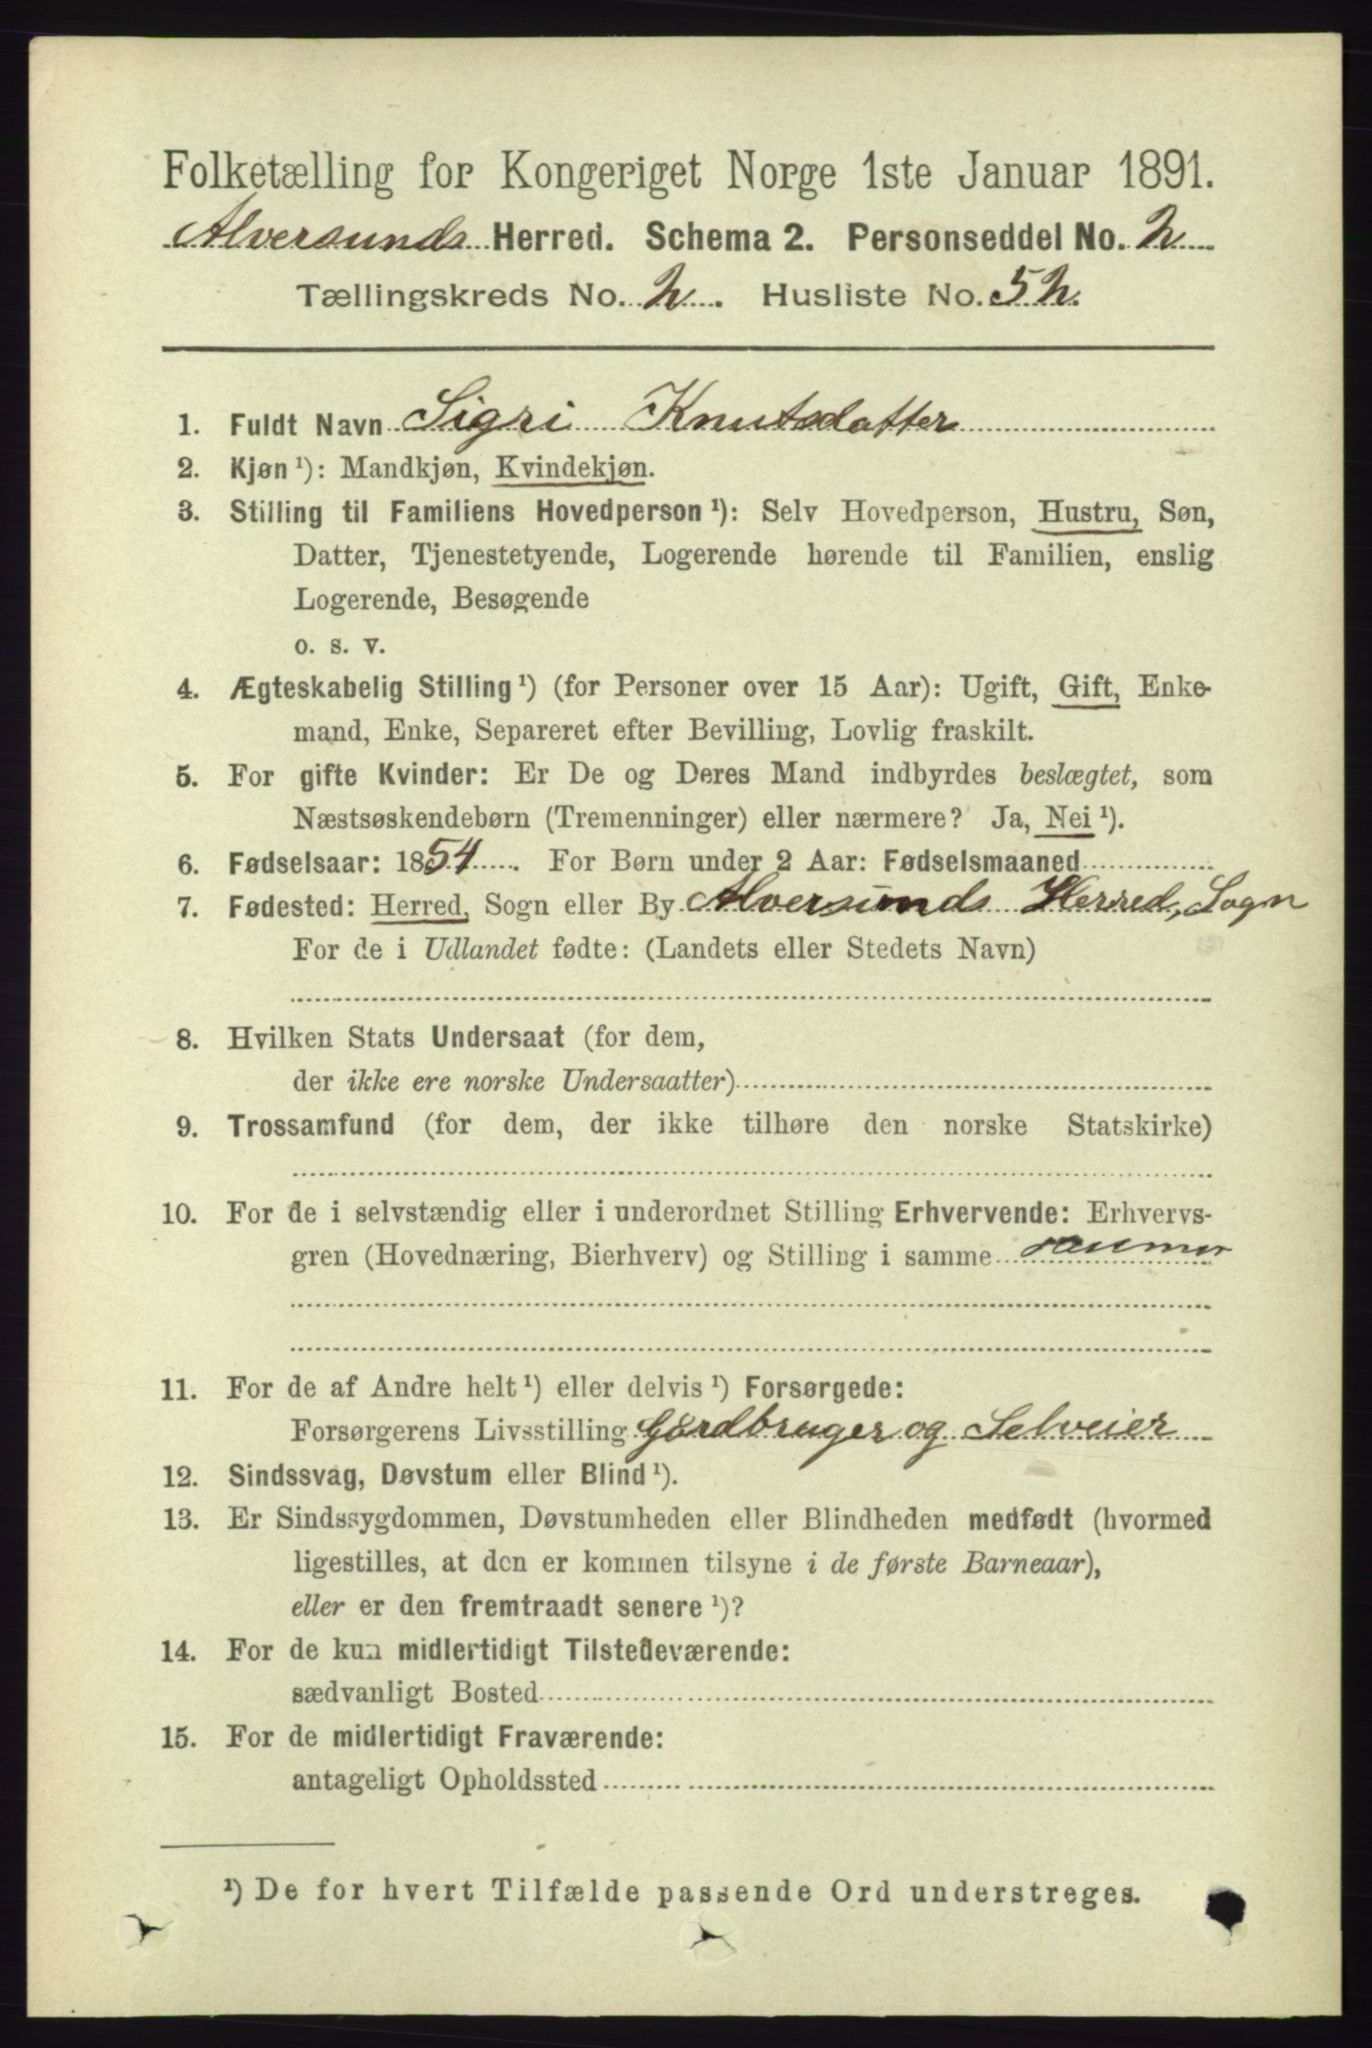 Folketælling for Kongeriget Norge 1ste Januar 1891.
Alversunds Herred. Schema 2. Personseddel No. 2
Tællingskreds No. 2. Husliste No. 52.
1. Fuldt Navn Sigri Knutsdatter
2. Kjøn ¹): Mandkjøn, Kvindekjøn.
3. Stilling til Familiens Hovedperson ¹): Selv Hovedperson, Hustru, Søn,
Datter, Tjenestetyende, Logerende hørende til Familien, enslig
Logerende, Besøgende
o. s. v.
4. Ægteskabelig Stilling ¹) (for Personer over 15 Aar): Ugift, Gift, Enke-
mand, Enke, Separeret efter Bevilling, Lovlig fraskilt.
5. For gifte Kvinder: Er De og Deres Mand indbyrdes beslægtet, som
Næstsøskendebørn (Tremenninger) eller nærmere? Ja, Nei ¹).
6. Fødselsaar: 1854. For Børn under 2 Aar: Fødselsmaaned
7. Fødested: Herred, Sogn eller By Alversunds Herred, Sogn
For de i Udlandet fødte: (Landets eller Stedets Navn)
8. Hvilken Stats Undersaat (for dem,
der ikke ere norske Undersaatter)
9. Trossamfund (for dem, der ikke tilhøre den norske Statskirke)
10. For de i selvstændig eller i underordnet Stilling Erhvervende: Erhvervs-
gren (Hovednæring, Bierhverv) og Stilling i samme
11. For de af Andre helt ¹) eller delvis ¹) Forsørgede:
Forsørgerens Livsstilling Gårdbruger og Selveier
12. Sindssvag, Døvstum eller Blind ¹).
13. Er Sindssygdommen, Døvstumheden eller Blindheden medfødt (hvormed
ligestilles, at den er kommen tilsyne i de første Barneaar),
eller er den fremtraadt senere ¹)?
14. For de kun midlertidigt Tilstedeværende:
sædvanligt Bosted
15. For de midlertidigt Fraværende:
antageligt Opholdssted
¹) De for hvert Tilfælde passende Ord understreges.